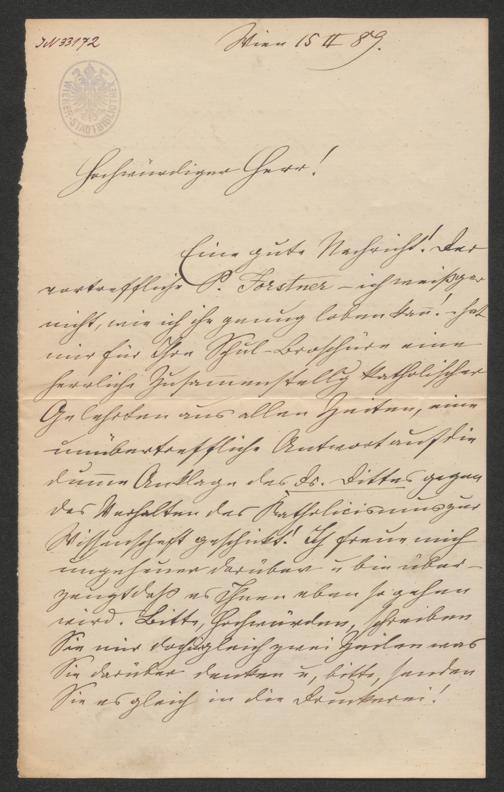 JN 33172
Wien 15 II 89.
WIENER STADTBIBLIOTHEK
Hochwürdiger Herr!
Eine gute Nachricht! Der
vortreffliche P. Forstner – ich weiß gar
nicht, wie ich ihn genug loben kann! – hat
mir für Ihre Schul-Broschüre eine
herrliche Zusammenstellg katholischer
Gelehrten aus allen Zeiten, eine
unübertreffliche Antwort auf die
dumme Anklage des Dr. Dittes gegen
das Verhalten des Katholicismus zur
Wissenschaft geschickt! Ich freue mich
ungeheuer darüber u bin über-
zeugt daß es Ihnen eben so gehen
wird. Bitte, Hochwürden, schreiben
Sie mir doch gleich zwei Zeilen was
Sie darüber denken u, bitte, senden
Sie es gleich in die Druckerei!